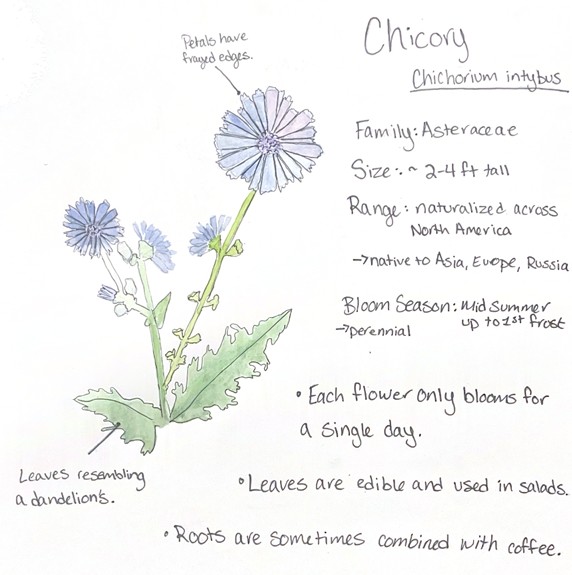 Petals have
frayed edges.
Chicory
Chichorium intybus
Family: Asteraceae
Size: ~ 2-4 ft tall
Range: naturalized across
North America
→native to Asia, Europe, Russia
Bloom Season: Mid summer
up to 1st frost
→perennial
• Each flower only blooms for
a single day.
Leaves resembling
a dandelion's.
• Leaves are edible and used in salads.
• Roots are sometimes combined with coffee.